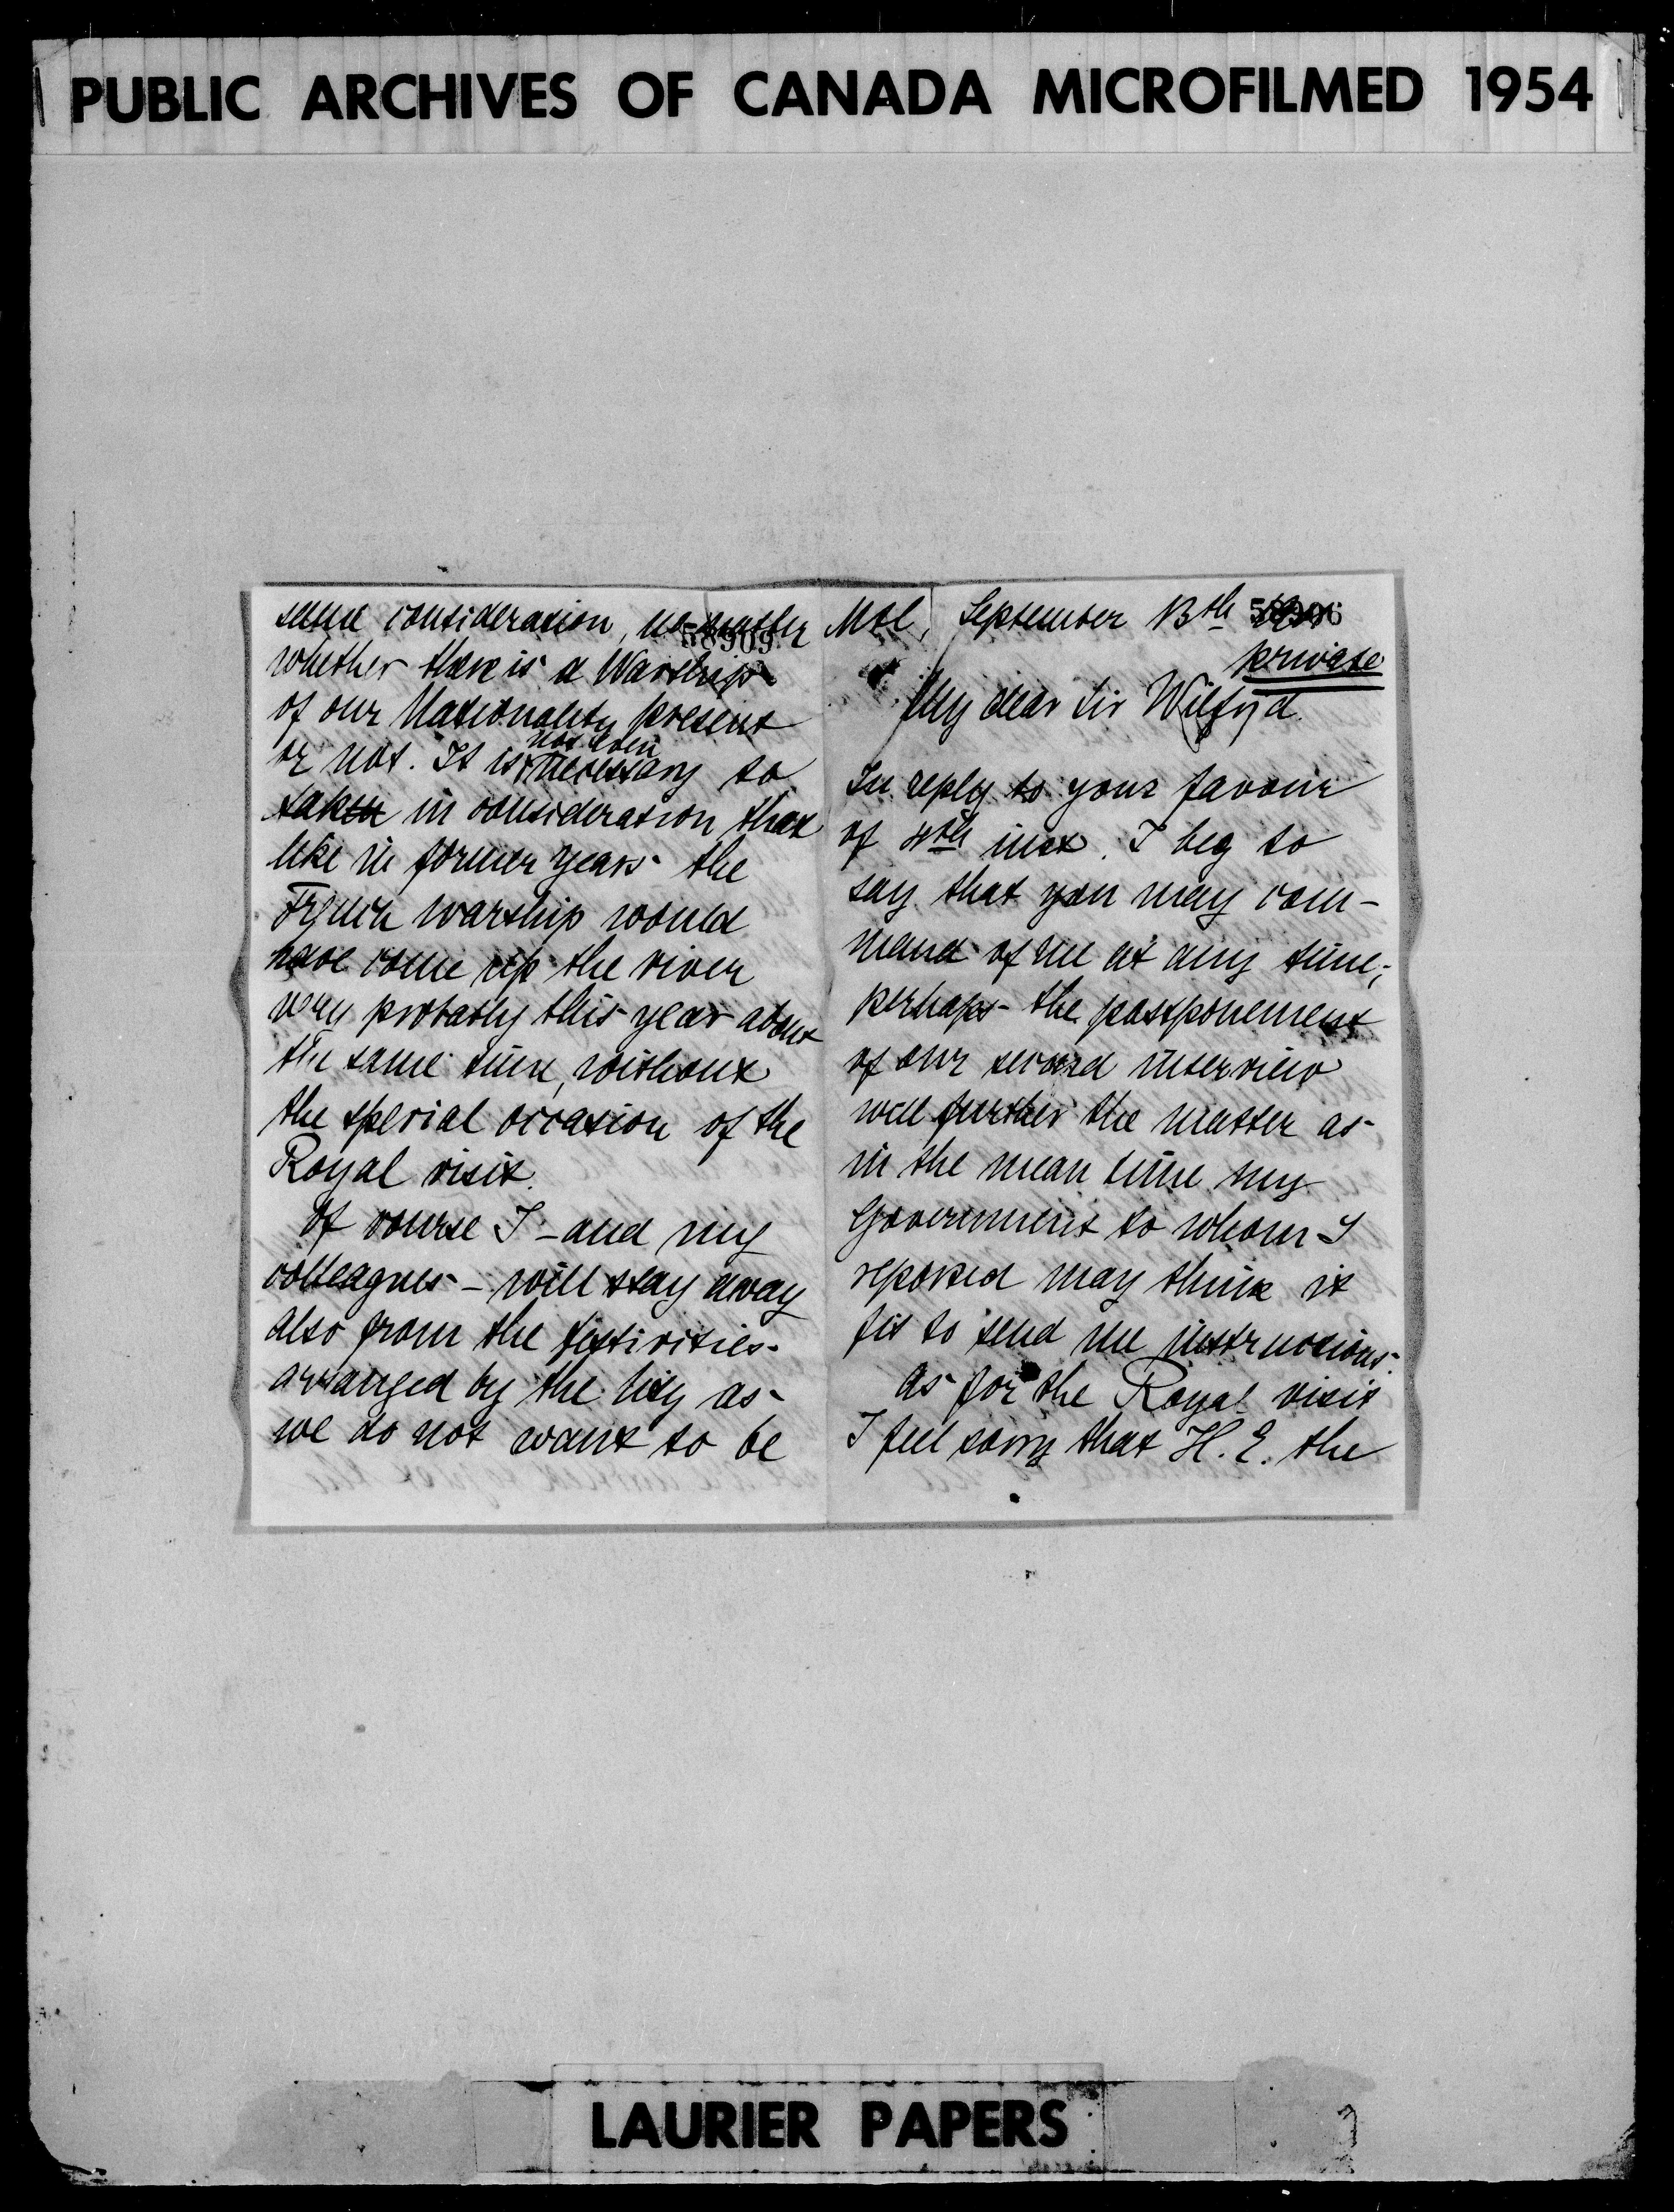 PUBLIC ARCHIVES OF CANADA MICROFILMED 1954
same consideration, no matter
58909
whether there is a Warship
of our Nationality present
or not. It is not even necessary to
taken in consideration that
like in former years the
French warship would
have come up the river
very probably this year about
the same time, without
the special occasion of the
Royal visit.
Of course I - and my
colleagues - will stay away
also from the festivities
arranged by the City as
we do not want to be
Mtl, September 13th
58906
private
My dear Sir Wilfrid.
In reply to your favour
of 4th inst. I beg to
say that you may com-
mand of me at any time;
perhaps the postponement
of our second interview
will further the matter as
in the mean time my
Government to whom I
reported may think it
fit to send me instructions.
As for the Royal visit
I feel sorry that H. E. the
LAURIER PAPERS